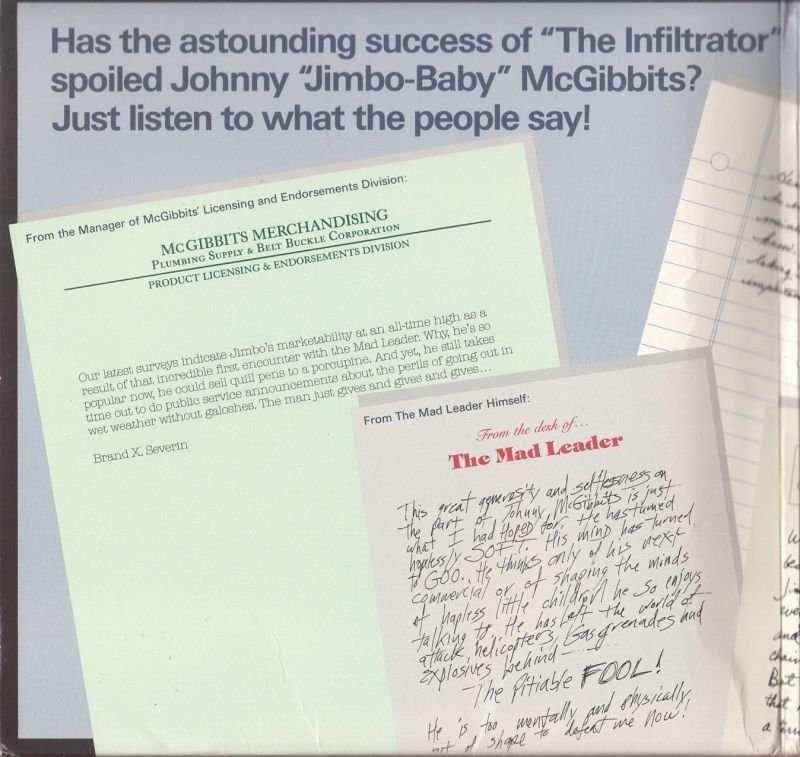 Has the astounding success of “The Infiltrator”
spoiled Johnny “Jimbo-Baby” McGibbits?
Just listen to what the people say!
From the Manager of McGibbits' Licensing and Endorsements Division:
McGIBBITS MERCHANDISING
PLUMBING SUPPLY & BELT BUCKLE CORPORATION
PRODUCT LICENSING & ENDORSEMENTS DIVISION
Our latest surveys indicate Jimbo's marketability at an all-time high as a
result of that incredible first encounter with the Mad Leader. Why, he's so
popular now, he could sell quill pens to a porcupine. And yet, he still takes
time out to do public service announcements about the perils of going out in
wet weather without galoshes. The man just gives and gives and gives...
Brand X. Severin
From The Mad Leader Himself:
From the desk of...
The Mad Leader
This great generosity and selflessness on
the part of Johnny McGibbits is just
what I had HOPED for. He has turned
hopelessly SOFT. His mind has turned
to GOO. He thinks only of his next
commercial or of shaping the minds
of hapless little children he so enjoys
talking to. He has left the world of
attack helicopters, Gas grenades and
explosives behind
The Pitiable FOOL!
He is too mentally and physically
out of shape to defeat me now!
and
But
that
a